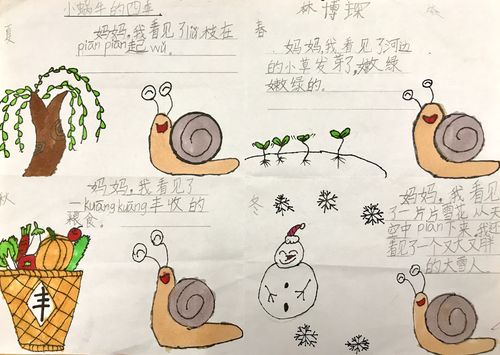 小蜗牛的四季
林博琛
夏
妈妈，我看见了树枝在
piān piān起wǔ。
春
妈妈，我看见了河边
的小草发芽了，嫩绿
嫩绿的。
秋
妈妈，我看见了
一kuāng kuāng丰收的
粮食。
丰
冬
妈妈，我看见
了一片片雪花从天
空中piān下来，我还
看见了一个又大又胖
的大雪人。